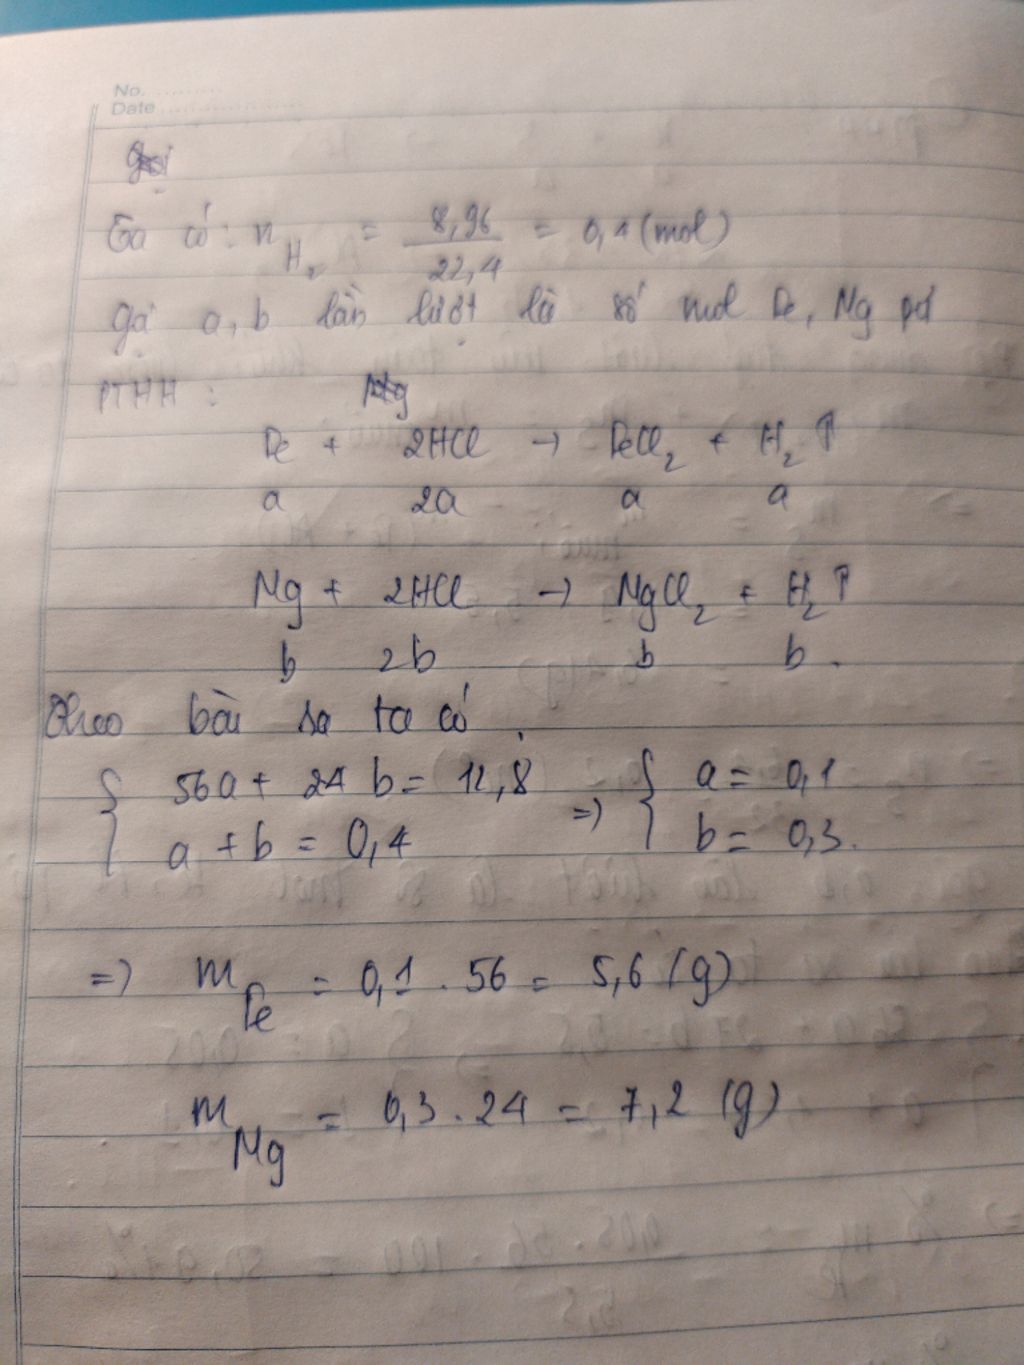 No. ............
Date ........................
Ta có: n H₂ = 8,96 / 22,4 = 0,4 (mol)
gọi a, b lần lượt là số mol Fe, Mg pứ
PTHH :
Fe + 2HCl → FeCl₂ + H₂ ↑
a 2a a a
Mg + 2HCl → MgCl₂ + H₂ ↑
b 2b b b .
Theo bài ra ta có
{ 56a + 24 b = 12,8 => { a = 0,1
a + b = 0,4 b = 0,3.
=> m Fe = 0,1 . 56 = 5,6 (g)
m Mg = 0,3 . 24 = 7,2 (g)